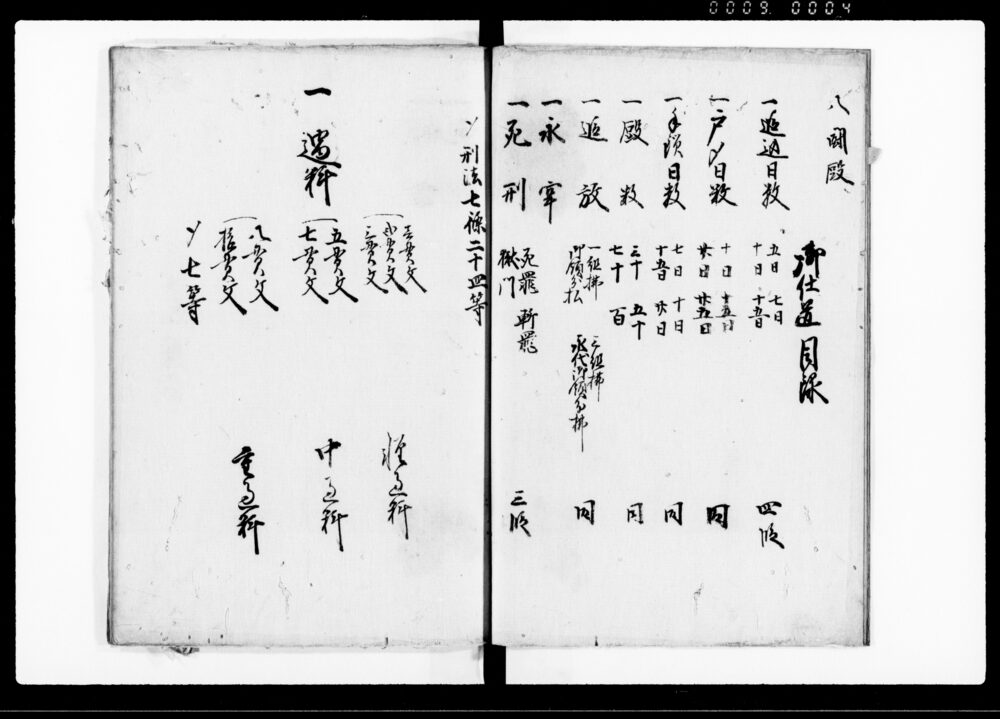 0009 0004
御仕置目録
一追込日数 五日 七日 十日 十五日 四段
一戸〆日数 十日 十五日 廿日 廿五日 同
一手鎖日数 七日 十日 十五日 廿日 同
一敲数 三十 五十 七十 百 同
一追放 一組払 三組払 御領分払 永代御領分払 同
一永牢
一死刑 死罪 斬罪 獄門 三段
〆刑法七條二十四等
一過料
三貫文 軽過料
五貫文
七貫文 中過料
八貫文
拾貫文 重過料
〆七等